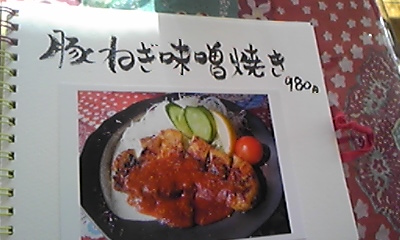 豚ねぎ味噌焼き
980円